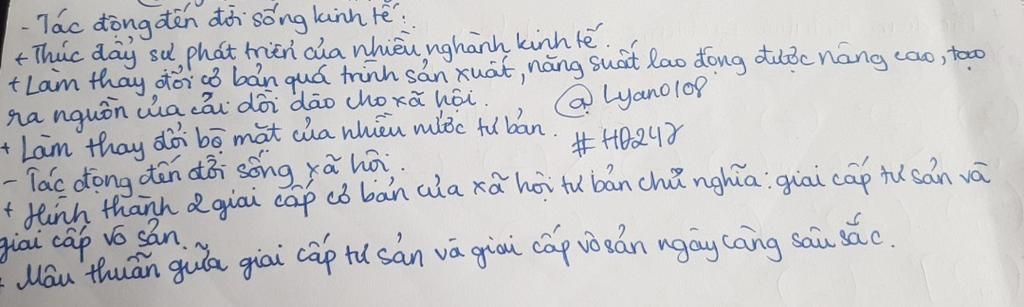 - Tác động đến đời sống kinh tế:
+ Thúc đẩy sự phát triển của nhiều nghành kinh tế.
+ Làm thay đổi cơ bản quá trình sản xuất, năng suất lao động được nâng cao, tạo
ra nguồn của cải dồi dào cho xã hội.
@Lyano108
+ Làm thay đổi bộ mặt của nhiều nước tư bản.
#HĐ247
- Tác động đến đời sống xã hội.
+ Hình thành 2 giai cấp cơ bản của xã hội tư bản chủ nghĩa: giai cấp tư sản và
giai cấp vô sản.
+ Mâu thuẫn giữa giai cấp tư sản và giai cấp vô sản ngày càng sâu sắc.